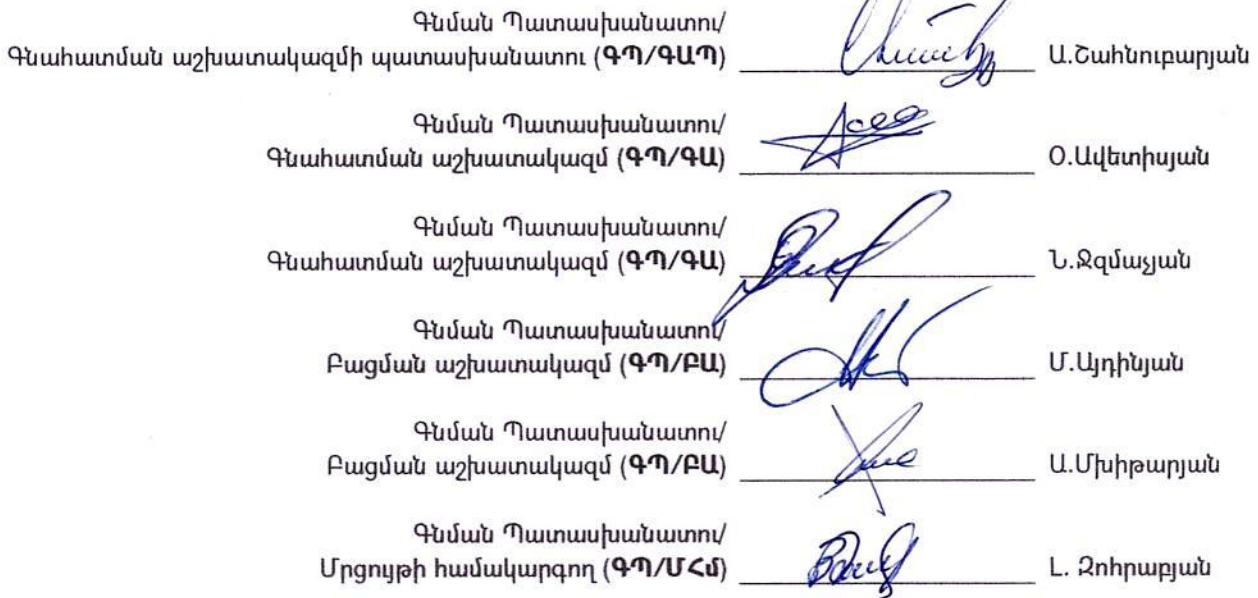 Գնման Պատասխանատու/
Գնահատման աշխատակազմի պատասխանատու (ԳՊ/ԳԱՊ) Ա.Շահնուբարյան
Գնման Պատասխանատու/
Գնահատման աշխատակազմ (ԳՊ/ԳԱ) Օ.Ավետիսյան
Գնման Պատասխանատու/
Գնահատման աշխատակազմ (ԳՊ/ԳԱ) Ն.Ջզմաչյան
Գնման Պատասխանատու/
Բացման աշխատակազմ (ԳՊ/ԲԱ) Մ.Այդինյան
Գնման Պատասխանատու/
Բացման աշխատակազմ (ԳՊ/ԲԱ) Ա.Մխիթարյան
Գնման Պատասխանատու/
Մրցույթի համակարգող (ԳՊ/ՄՀմ) Լ. Զոհրաբյան